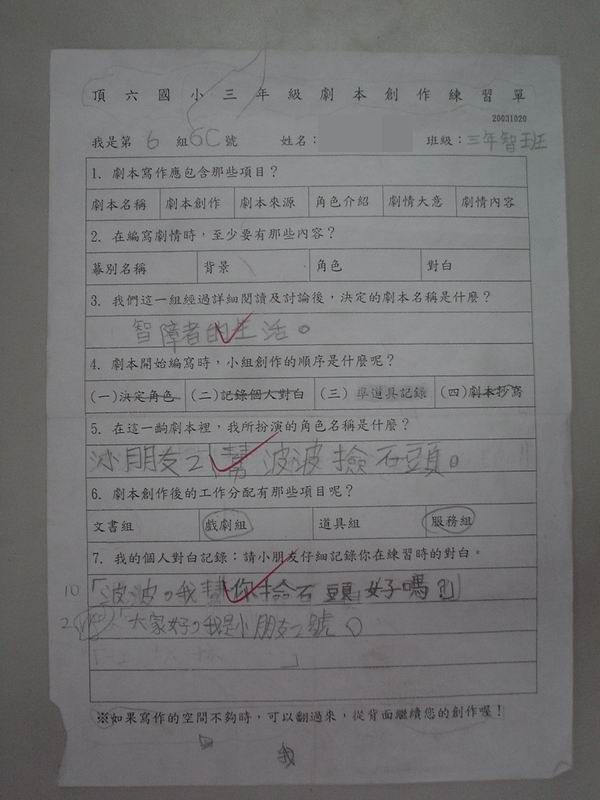 頂六國小三年級劇本創作練習單
20031020
我是第 6 組 6C 號 姓名： 班級：三年智班
1. 劇本寫作應包含那些項目？
劇本名稱 劇本創作 劇本來源 角色介紹 劇情大意 劇情內容
2. 在編寫劇情時，至少要有那些內容？
幕別名稱 背景 角色 對白
3. 我們這一組經過詳細閱讀及討論後，決定的劇本名稱是什麼？
智障者的生活。
4. 劇本開始編寫時，小組創作的順序是什麼呢？
(一)決定角色 (二)記錄個人對白 (三)準道具記錄 (四)劇本抄寫
5. 在這一齣劇本裡，我所扮演的角色名稱是什麼？
小朋友2 幫波波撿石頭。
6. 劇本創作後的工作分配有那些項目呢？
文書組 戲劇組 道具組 服務組
7. 我的個人對白記錄：請小朋友仔細記錄你在練習時的對白。
10「波波，我幫你撿石頭好嗎？」
2 「大家好，我是小朋友2號。
※如果寫作的空間不夠時，可以翻過來，從背面繼續您的創作喔！
我